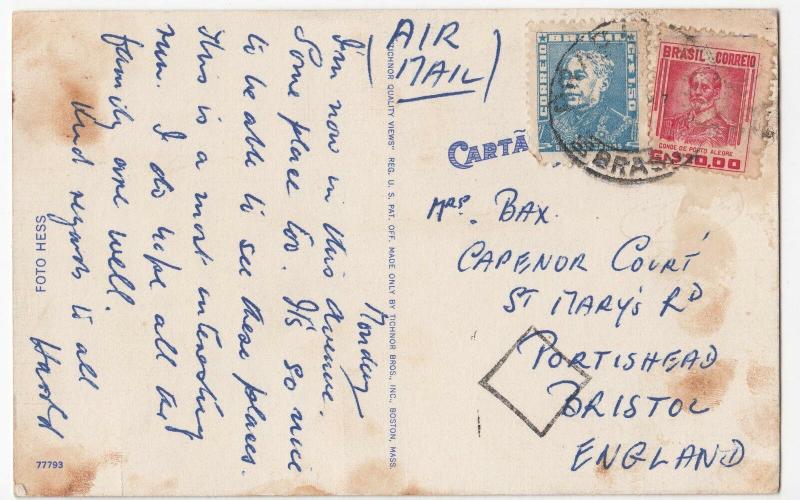 Monday
I'm now in this Avenue.
Some place too. It's so nice
to be able to see these places.
This is a most interesting
run. I do hope all the
family are well.
Kind regards to all
Harold
FOTO HESS
77793
TICHNOR QUALITY VIEWS" REG. U. S. PAT. OFF. MADE ONLY BY TICHNOR BROS., INC., BOSTON, MASS.
AIR
MAIL
CARTÃ
BRASIL CORREIO
CONDE DE PORTO ALEGRE
CORREIO
BRAS
MRS. BAX.
CAPENOR COURT
ST MARY'S RD
PORTISHEAD
BRISTOL
ENGLAND